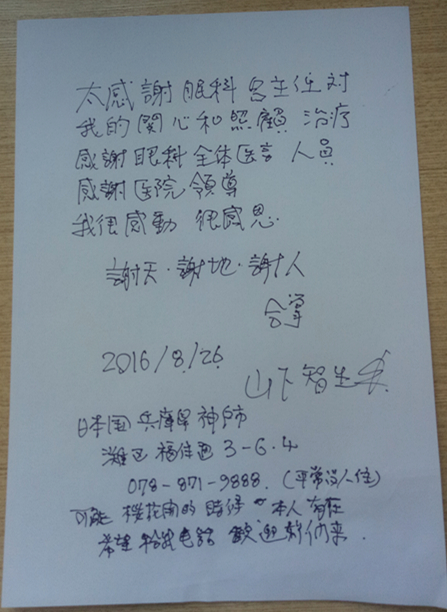 太感謝眼科宫主任对
我的関心和照顧 治疗
感謝眼科全体医言 人員
感謝医院領導
我很感動 很感恩.
謝天·謝地·謝人
合掌
2016/8/26
山下智生
日本国 兵庫県 神戸市
灘区 福住通 3-6.4
078-871-9888. (平常没人住)
可能 桜花開的時候 本人有在
希望給我电話 歓迎 你们来.